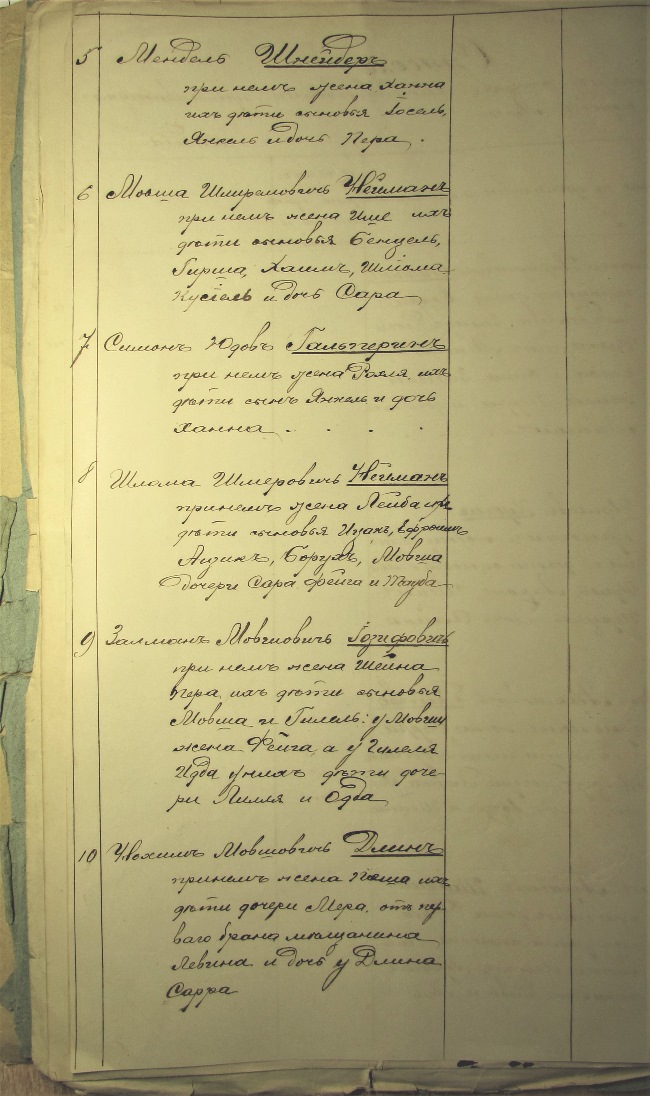 5 Мендель Шнейдеръ
при немъ жена Ханна
ихъ дѣти сыновья Іосель,
Янкель и дочь Пера.
6 Мовша Шмеровичъ Нейманъ
при немъ жена ихъ
дѣти сыновья Бенцель,
Гирша, Хаимъ, Шліома
Кусіель и дочь Сара
7 Симонъ Юдовъ Гальперинъ
при немъ жена ихъ
дѣти сынъ Янкель и дочь
Ханна . . . .
8 Шлома Шмеровичъ Нейманъ
при немъ жена Лейба их
дѣти сыновья Ицкъ, Ефроимъ
Айзикъ, Борухъ, Мовша
дочери Сара Фейга и Тауба
9 Залманъ Мовшовичъ
при немъ жена Шейна
Пера, ихъ дѣти сыновья
Мовша и Гилель: у Мовши
жена Фейга, а у Гилеля
Идба у нихъ дѣти доче-
ри Лилля и Одба
10 Мовшовичъ Длинъ
при немъ жена Пеша ихъ
дѣти дочери Мера, отъ пер-
ваго брака мѣщанина
Левина и дочь у Длина
Сарра